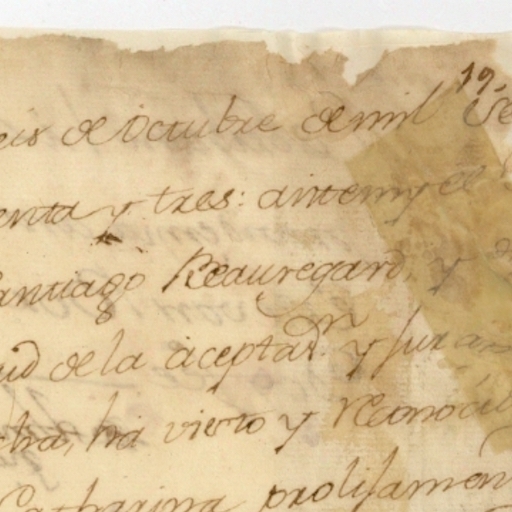 19.
eis de Octubre de mil Se
enta y tres: antemy el
antiago Beauregard, y
ud de la aceptad.n y Jura
cha, ha visto y reconoci
Catharina prolijamen